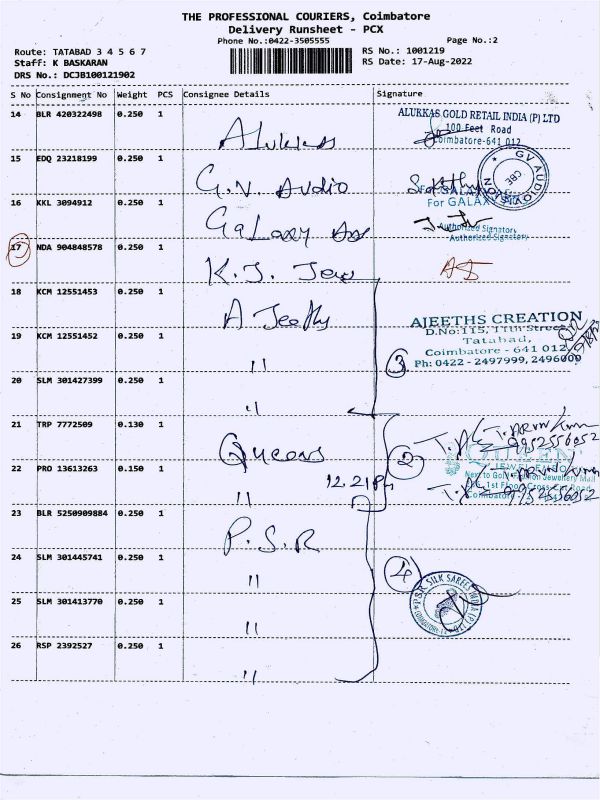 THE PROFESSIONAL COURIERS, Coimbatore
Delivery Runsheet - PCX
Phone No.:0422-3505555
Page No.:2
Route: TATABAD 3 4 5 6 7
RS No.: 1001219
Staff: K BASKARAN
RS Date: 17-Aug-2022
DRS No.: DCJB100121902
S No Consignment No Weight PCS Consignee Details Signature
14 BLR 420322498 0.250 1 Alukkas
ALUKKAS GOLD RETAIL INDIA (P) LTD
100 Feet Road
Coimbatore-641 012
15 EDQ 23218199 0.250 1 G.V. Audio
GV AUDIO
CBE
16 KKL 3094912 0.250 1 Galaxy
For GALAXY
Authorized Signatory
Authorized Signatory
17 NDA 904848578 0.250 1 K.J. Jew
18 KCM 12551453 0.250 1 A Jeeths
AJEETHS CREATION
D.No:115, 11th Street
Tatabad,
Coimbatore - 641 012
Ph: 0422 - 2497999, 2496000
19 KCM 12551452 0.250 1 "
3
20 SLM 301427399 0.250 1 "
21 TRP 7772509 0.130 1 Queens
9952556052
2
QUEEN
22 PRO 13613263 0.150 1 "
12.21 Pm
9952556052
23 BLR 5250909884 0.250 1 P.S.R
24 SLM 301445741 0.250 1 "
4
PSR SILK SAREES INDIA (P) LTD
25 SLM 301413770 0.250 1 "
26 RSP 2392527 0.250 1 "